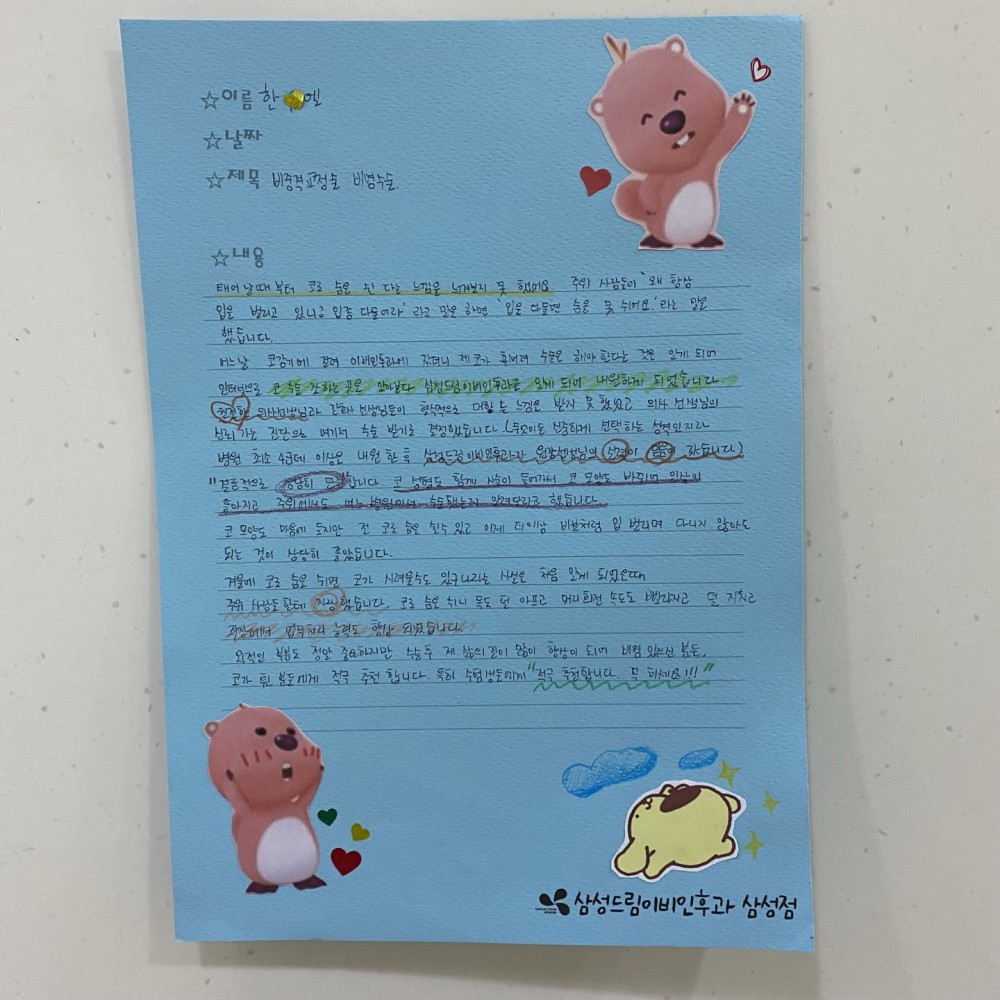 ☆이름 한 엘
☆날짜
☆제목 비중격교정술 비염수술.
☆내용
태어날때부터 코로 숨을 쉰 다는 느낌을 느껴보지 못 했어요. 주위 사람들이 '왜 항상
입을 벌리고 있니? 입좀 다물어라' 라고 말을 하면 '입을 다물면 숨을 못 쉬어요.' 라는 말을
했습니다.
어느날 코감기에 걸려 이비인후과에 갔더니 제 코가 휘어져 수술을 해야 한다는 것을 알게 되어
인터넷으로 코 수술 잘하는 곳을 찾아보다 삼성드림이비인후과를 알게 되어 내원하게 되었습니다.
친절한 의사선생님과 간호사 선생님들이 형식적으로 대한다는 느낌을 받지 못 했었고 의사 선생님의
신뢰가는 진단으로 여기서 수술 받기로 결정했습니다. (무엇이든 신중하게 선택하는 성격인지라
병원 최소 4군데 이상을 내원한 후 삼성드림이비인후과 원장선생님의 이 갔습니다.)
"결론적으로 상당히 만족합니다. 코 성형도 함께 시술이 들어가서 코 모양도 바뀌며 인상이
좋아지고 주위에서도 어느 병원에서 수술했는지 알려달라고 했습니다.
코 모양도 마음에 들지만 전 코로 숨을 쉴수 있고 이제 더이상 바보처럼 입 벌리며 다니지 않아도
되는 것이 상당히 좋았습니다.
겨울에 코로 숨을 쉬면 코가 시려울수도 있구나라는 사실을 처음 알게 되었을때
주위 사람들한테 자랑했습니다. 코로 숨을 쉬니 목도 덜 아프고 머리회전 속도도 빨라지고 덜 지치고
직장에서 업무처리 능력도 향상 되었습니다.
외적인 부분도 정말 중요하지만 수술 후 제 삶의 질이 많이 향상이 되어 비염 있으신 분들,
코가 휜 분들에게 적극 추천 합니다. 특히 수험생들에게 "적극 추천합니다. 꼭 하세요!!!"
삼성드림이비인후과 삼성점